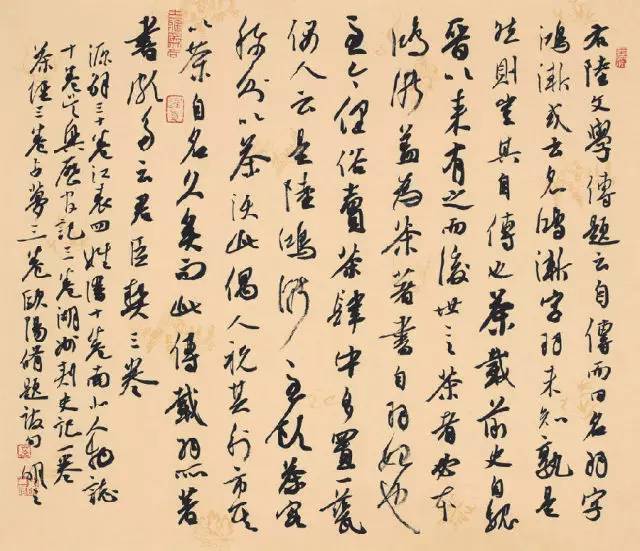 右陸文學傳題云自傳而曰名羽字
鴻漸或云名鴻漸字羽未知孰是
然則豈其自傳也茶載前史自魏
晉以來有之而後世言茶者必本
鴻漸蓋為茶著書自羽始也
至今俚俗賣茶肆中多置一甕
偶人云是陸鴻漸至飲茶客
稀則以茶沃此偶人祝其利市其
以茶自名久矣而此傳載羽所著
書頗多云君臣契三卷
源解三十卷江表四姓譜十卷南北人物誌
十卷吳興歷官記三卷湖州刺史記一卷
茶經三卷占夢三卷歐陽脩題跋句